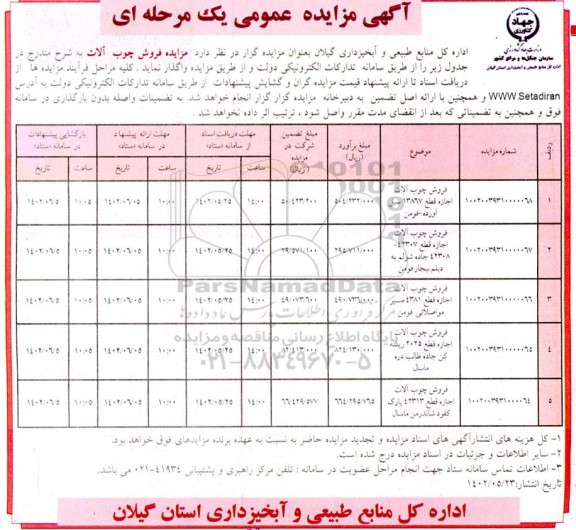 آگهی مزایده عمومی یک مرحله ای
جهاد کشاورزی
سازمان جنگلها و مراتع کشور
اداره کل منابع طبیعی و آبخیزداری استان گیلان
اداره کل منابع طبیعی و آبخیزداری گیلان بعنوان مزایده گزار در نظر دارد مزایده فروش چوب آلات به شرح مندرج در
جدول زیر را از طریق سامانه تدارکات الکترونیکی دولت و از طریق مزایده واگذار نماید . کلیه مراحل فرآیند مزایده ها از
دریافت اسناد تا ارائه پیشنهاد قیمت مزایده گران و گشایش پیشنهادات از طریق سامانه تدارکات الکترونیکی دولت به آدرس
WWW.Setadiran و همچنین با ارائه اصل تضمین به دبیرخانه مزایده گزار گزار انجام خواهد شد. به تضمینات واصله بدون بارگذاری در سامانه
فوق و همچنین به تضمیناتی که بعد از انقضای مدت مقرر واصل شود ، ترتیب اثر داده نخواهد شد .
ردیف شماره مزایده موضوع مبلغ برآورد (ریال) مبلغ تضمین شرکت در مزایده (ریال) مهلت دریافت اسناد از سامانه (ستاد) مهلت ارائه پیشنهاد در سامانه (ستاد) بازگشایی پیشنهادات در سامانه (ستاد)
ساعت تاریخ ساعت تاریخ ساعت تاریخ
۱ ۱۰۰۲۰۰۳۹۳۱۰۰۰۰۰۶۸ فروش چوب آلات اجازه قطع ۱۳۸۶۷ سیل آورده-فومن ۵۰۴/۲۳۲/۰۰۰ ۵۰/۴۲۳/۲۰۰ ۱۴:۰۰ ۱۴۰۲/۰۵/۲۵ ۱۰:۰۰ ۱۴۰۲/۰۶/۰۵ ۱۰:۰۵ ۱۴۰۲/۰۶/۵
۲ ۱۰۰۲۰۰۳۹۳۱۰۰۰۰۰۶۷ فروش چوب آلات اجازه قطع ۴۲۳۰۷-۴۲۳۰۸ جاده شولم به دیلم بیجار فومن ۲۹۵/۷۱۱/۰۰۰ ۲۹/۵۷۱/۱۰۰ ۱۴:۰۰ ۱۴۰۲/۰۵/۲۵ ۱۰:۰۰ ۱۴۰۲/۰۶/۰۵ ۱۰:۰۵ ۱۴۰۲/۰۶/۵
۳ ۱۰۰۲۰۰۳۹۳۱۰۰۰۰۰۶۶ فروش چوب آلات اجازه قطع ۴۳۸۱ مسیر مواصلاتی فومن ۴۹۰/۷۳۶/۰۰۰ ۴۹/۰۷۳/۶۰۰ ۱۴:۰۰ ۱۴۰۲/۰۵/۲۵ ۱۰:۰۰ ۱۴۰۲/۰۶/۰۵ ۱۰:۰۵ ۱۴۰۲/۰۶/۵
۴ ۱۰۰۲۰۰۳۹۳۱۰۰۰۰۰۶۵ فروش چوب آلات اجازه قطع ۲۰۲۵ ریشه کن جاده طالب دره ماسال ۸۲۴/۱۳۰/۰۰۰ ۸۲/۴۱۳/۰۰۰ ۱۴:۰۰ ۱۴۰۲/۰۵/۲۵ ۱۰:۰۰ ۱۴۰۲/۰۶/۰۵ ۱۰:۰۵ ۱۴۰۲/۰۶/۵
۵ ۱۰۰۲۰۰۳۹۳۱۰۰۰۰۰۶۴ فروش چوب آلات اجازه قطع ۴۲۳۱۳ پارک کفود شاندرمن ماسال ۶۶۴/۲۹۵/۷۶۵ ۶۶/۴۲۹/۵۷۷ ۱۴:۰۰ ۱۴۰۲/۰۵/۲۵ ۱۰:۰۰ ۱۴۰۲/۰۶/۰۵ ۱۰:۰۵ ۱۴۰۲/۰۶/۵
ParsNamadData
پایگاه اطلاع رسانی مناقصه و مزایده
۰۲۱-۸۸۳۴۹۶۷۰-۵
۱- کل هزینه های انتشارآگهی های اسناد مزایده و تجدید مزایده حاضر به نسبت به عهده برنده مزایدهای فوق خواهد بود.
۲- سایر اطلاعات و جزئیات در اسناد مزایده درج شده است.
۳- اطلاعات تماس سامانه ستاد جهت انجام مراحل عضویت در سامانه : تلفن مرکز راهبری و پشتیبانی ۴۱۹۳۴-۰۲۱ می باشد.
تاریخ انتشار:۱۴۰۲/۰۵/۲۳
اداره کل منابع طبیعی و آبخیزداری استان گیلان